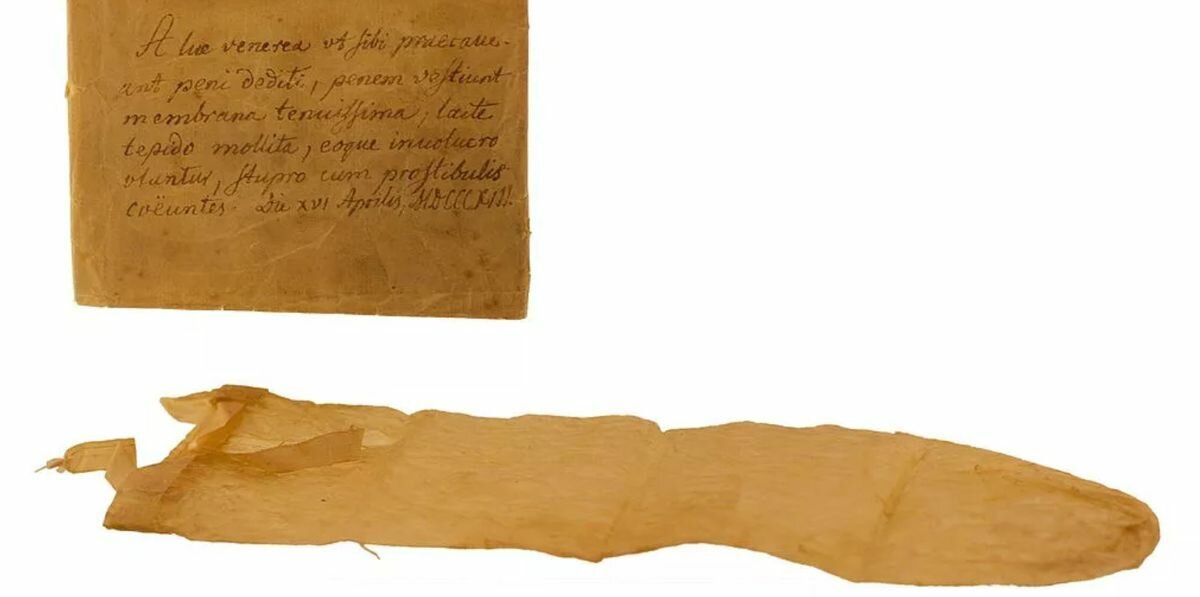 A lue venerea ut sibi praecave-
ant peni dediti, penem vestiunt
membrana tenuissima, lacte
tepido mollita, eoque involucro
utuntur, stupro cum prostibulis
coëuntes. Die XVI Aprilis, MDCCCXIII.